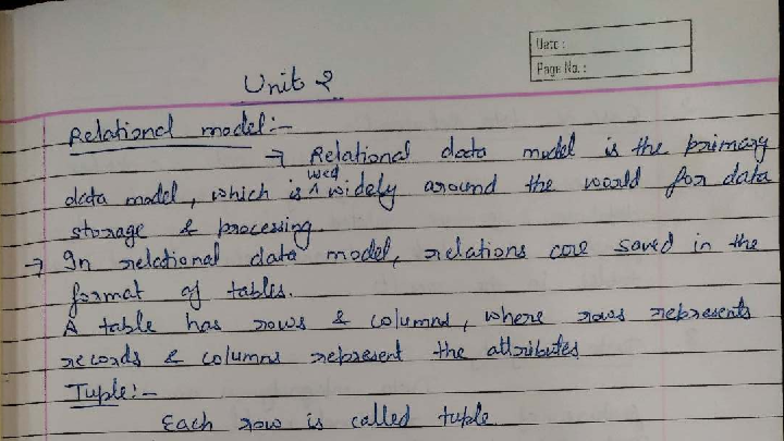 Date :
Page No. :
Unit 2
Relational model:-
→ Relational data model is the primary
data model, which is used widely around the world for data
storage & processing.
→ In relational data model, relations are saved in the
format of tables.
A table has rows & columns, where rows represents
records & columns represent the attributes
Tuple:-
Each row is called tuple.